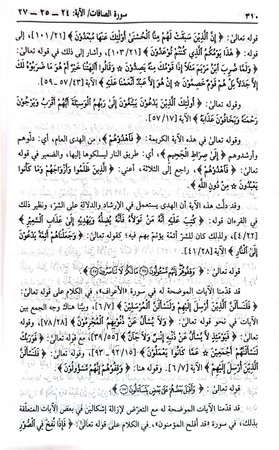 ٣١٠ سورة الصافات/ الآية: ٢٤ ــ ٢٥ ــ ٢٧
قوله تعالىٰ: ﴿ إِنَّ الَّذِينَ سَبَقَتْ لَهُم مِّنَّا الْحُسْنَىٰ أُوْلَٰئِكَ عَنْهَا مُبْعَدُونَ ﴾ [١٠١/٢١] إلى
قوله تعالىٰ: ﴿ هَٰذَا يَوْمُكُمُ الَّذِي كُنتُمْ تُوعَدُونَ ﴾ [١٠٣/٢١]، وأشار إلى ذلك في قوله تعالىٰ:
﴿ وَلَمَّا ضُرِبَ ابْنُ مَرْيَمَ مَثَلًا إِذَا قَوْمُكَ مِنْهُ يَصِدُّونَ ☆ وَقَالُوا أَآلِهَتُنَا خَيْرٌ أَمْ هُوَ مَا ضَرَبُوهُ لَكَ
إِلَّا جَدَلًا بَلْ هُمْ قَوْمٌ خَصِمُونَ ☆ إِنْ هُوَ إِلَّا عَبْدٌ أَنْعَمْنَا عَلَيْهِ ﴾ الآية [٥٧/٤٣ ــ ٥٩].
وقوله تعالىٰ: ﴿ أُولَٰئِكَ الَّذِينَ يَدْعُونَ يَبْتَغُونَ إِلَىٰ رَبِّهِمُ الْوَسِيلَةَ أَيُّهُمْ أَقْرَبُ وَيَرْجُونَ
رَحْمَتَهُ وَيَخَافُونَ عَذَابَهُ ﴾ الآية [٥٧/١٧].
وقوله تعالىٰ في هذه الآية الكريمة: ﴿ فَاهْدُوهُمْ ﴾، من الهدى العام، أي: دلّوهم
وأرشدوهم ﴿ إِلَىٰ صِرَاطِ الْجَحِيمِ ﴾، أي: طريق النار ليسلكوها إليها، والضمير في قوله
تعالىٰ: ﴿ فَاهْدُوهُمْ ﴾، راجع إلى الثلاثة، أعني: ﴿ الَّذِينَ ظَلَمُوا وَأَزْوَاجَهُمْ وَمَا كَانُوا
يَعْبُدُونَ ☆ مِن دُونِ اللَّهِ ﴾.
وقد دلّت هذه الآية أن الهدى يستعمل في الإرشاد والدلالة على الشرّ، ونظير ذلك
في القرءان قوله: ﴿ كُتِبَ عَلَيْهِ أَنَّهُ مَن تَوَلَّاهُ فَأَنَّهُ يُضِلُّهُ وَيَهْدِيهِ إِلَىٰ عَذَابِ السَّعِيرِ ﴾
[٤/٢٢]، ولذلك كان للشرّ أئمّة يؤتمّ بهم فيه؛ كقوله تعالىٰ: ﴿ وَجَعَلْنَاهُمْ أَئِمَّةً يَدْعُونَ
إِلَى النَّارِ ﴾ الآية [٤١/٢٨].
قوله تعالىٰ: ﴿ وَقِفُوهُمْ إِنَّهُم مَّسْئُولُونَ ﴿٢٤﴾ مَا لَكُمْ لَا تَنَاصَرُونَ ﴿٢٥﴾ ﴾.
قد قدّمنا الآيات الموضحة له في سورة «الأعراف»، في الكلام على قوله تعالىٰ:
﴿ فَلَنَسْأَلَنَّ الَّذِينَ أُرْسِلَ إِلَيْهِمْ وَلَنَسْأَلَنَّ الْمُرْسَلِينَ ﴾ [٦/٧]، وبيّنّا هناك وجه الجمع بين
الآيات في نحو قوله تعالىٰ: ﴿ وَلَا يُسْأَلُ عَن ذُنُوبِهِمُ الْمُجْرِمُونَ ﴾ [٧٨/٢٨]، وقوله
تعالىٰ: ﴿ فَيَوْمَئِذٍ لَّا يُسْأَلُ عَن ذَنبِهِ إِنسٌ وَلَا جَانٌّ ﴾ [٣٩/٥٥]، مع قوله: ﴿ فَوَرَبِّكَ
لَنَسْأَلَنَّهُمْ أَجْمَعِينَ ☆ عَمَّا كَانُوا يَعْمَلُونَ ﴾ [٩٢/١٥ ــ ٩٣]، وقوله تعالىٰ: ﴿ فَلَنَسْأَلَنَّ
الَّذِينَ أُرْسِلَ إِلَيْهِمْ ﴾ الآية [٦/٧]، وقوله هنا: ﴿ وَقِفُوهُمْ إِنَّهُم مَّسْئُولُونَ ﴾.
قوله تعالىٰ: ﴿ وَأَقْبَلَ بَعْضُهُمْ عَلَىٰ بَعْضٍ يَتَسَاءَلُونَ ﴿٢٧﴾ ﴾.
قد قدّمنا الآيات الموضحة له مع التعرّض لإزالة إشكالين في بعض الآيات المتعلّقة
بذلك، في سورة «قد أفلح المؤمنون»، في الكلام على قوله تعالىٰ: ﴿ فَإِذَا نُفِخَ فِي الصُّورِ